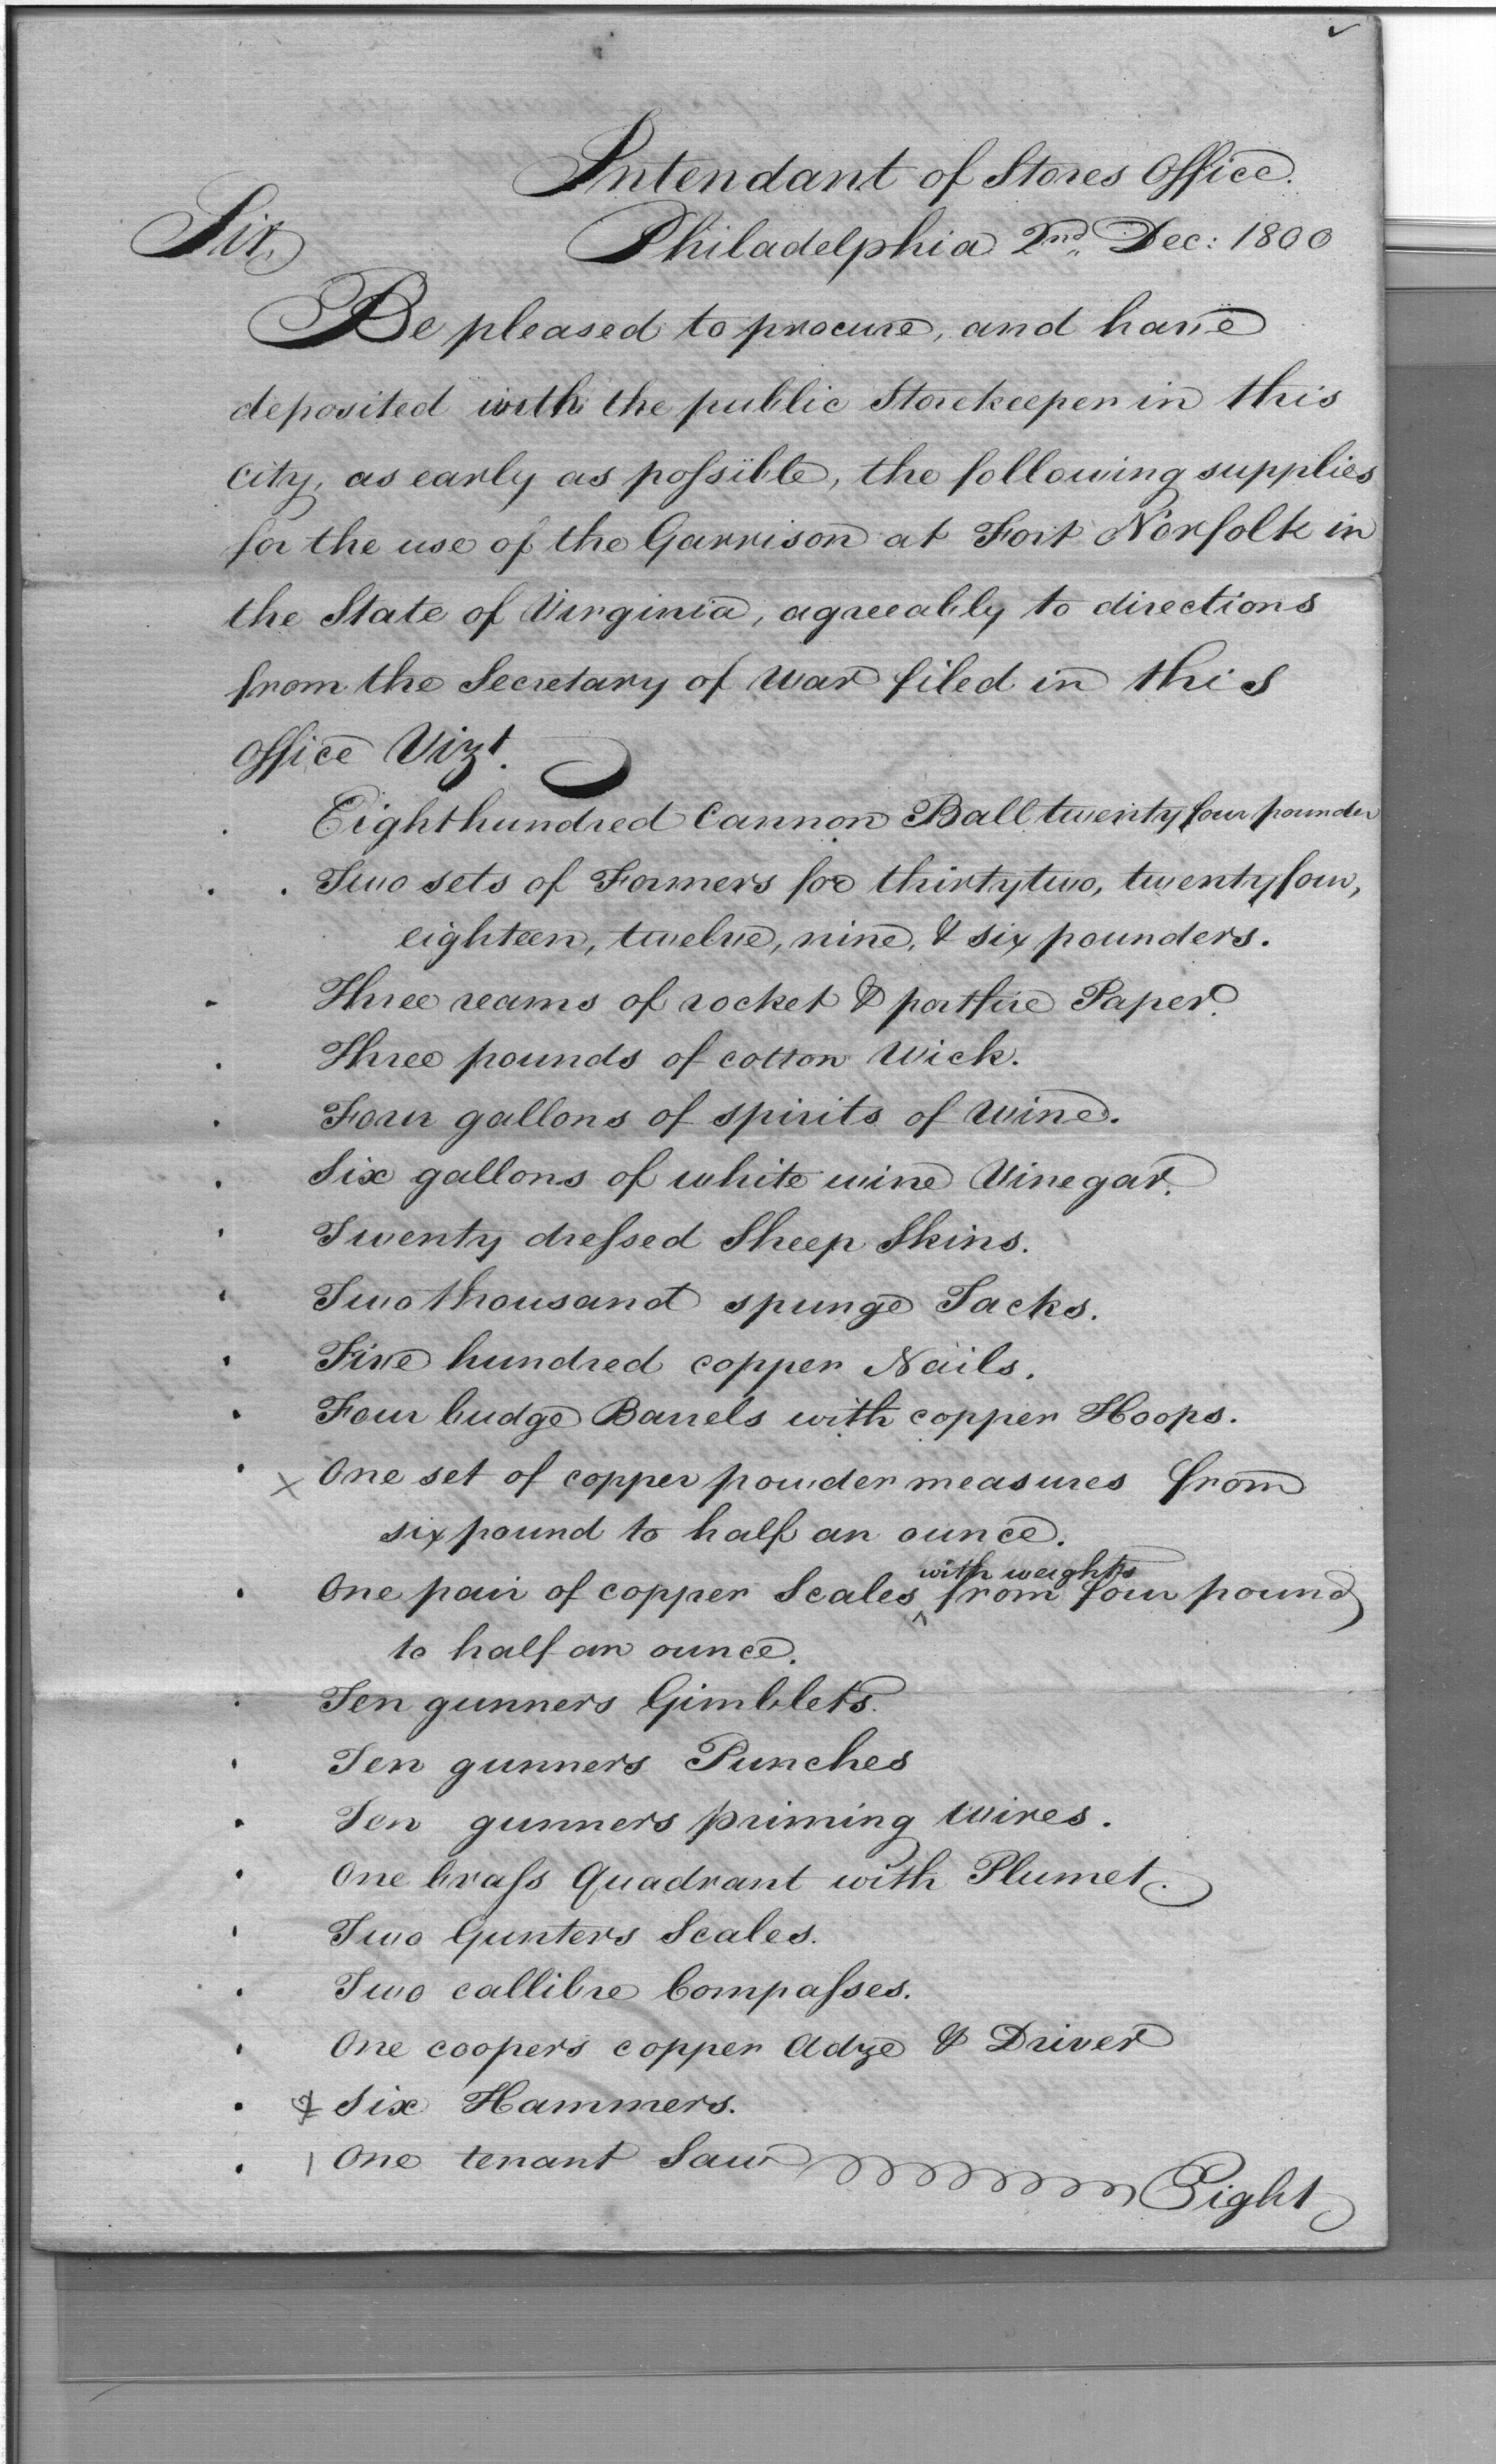 Intendant of Stores Office.
Sir,
Philadelphia 2nd Dec: 1800
Be pleased to procure, and have
deposited with the public Storekeeper in this
city, as early as poſsible, the following supplies
for the use of the Garrison at Fort Norfolk in
the State of Virginia, agreeably to directions
from the Secretary of War filed in this
office Vizt.
Eight hundred Cannon Ball twenty four pounder
Two sets of Formers for thirtytwo, twentyfour,
eighteen, twelve, nine, & six pounders.
Three reams of rocket & portfire Paper.
Three pounds of cotton Wick.
Four gallons of spirits of Wine.
Six gallons of white wine Vinegar.
Twenty dreſsed Sheep Skins.
Two thousand spunge Tacks.
Five hundred copper Nails.
Four budge Barrels with copper Hoops.
x One set of copper powder measures from
six pound to half an ounce.
with weights
One pair of copper Scales ^ from four pound
to half an ounce.
Ten gunners Gimblets.
Ten gunners Punches
Ten gunners priming Wires.
One braſs Quadrant with Plumet.
Two Gunters Scales.
Two callibre Compaſses.
One coopers copper Adze & Driver
Six Hammers.
One tenant Saw
Eight